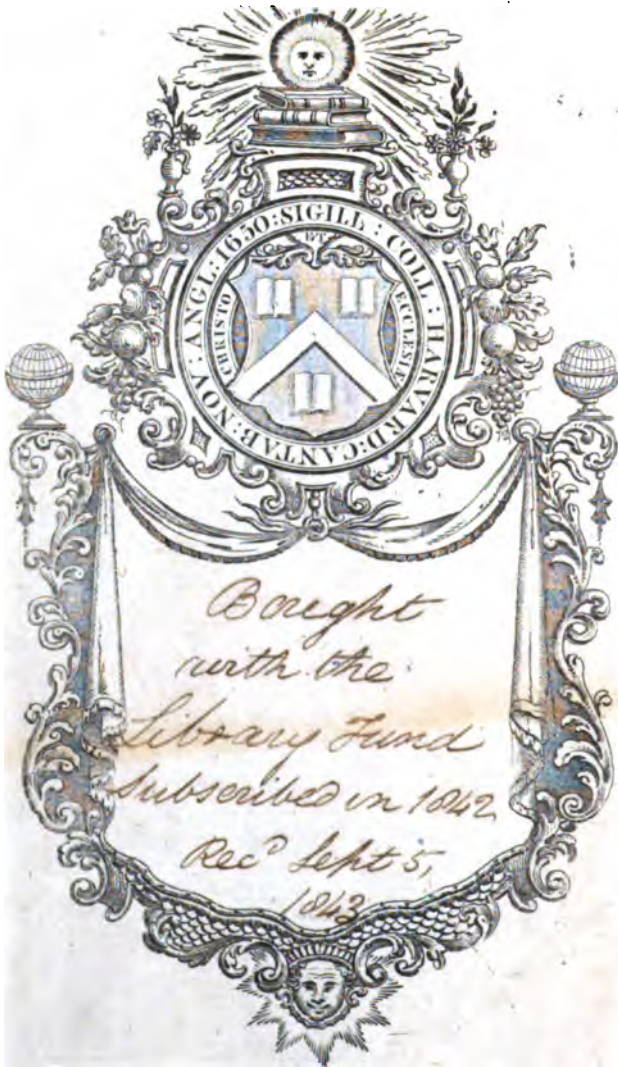 SIGILL : COLL : HARVARD : CANTAB : NOV : ANGL : 1650 :
ET
CHRISTO
ECCLESIÆ
Bought
with the
Library Fund
Subscribed in 1842
Recᴰ Sept 5,
1843